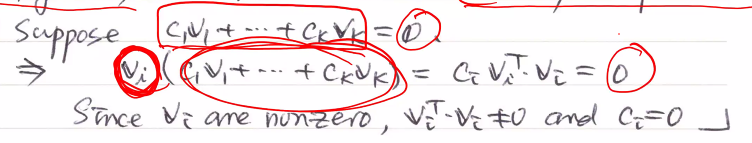 Suppose c₁v₁ + ⋯ + cₖvₖ = 0.
⇒ vᵢ (c₁v₁ + ⋯ + cₖvₖ) = cᵢ vᵢᵀ·vᵢ = 0
Since vᵢ are nonzero, vᵢᵀ·vᵢ ≠ 0 and cᵢ=0 ⌟